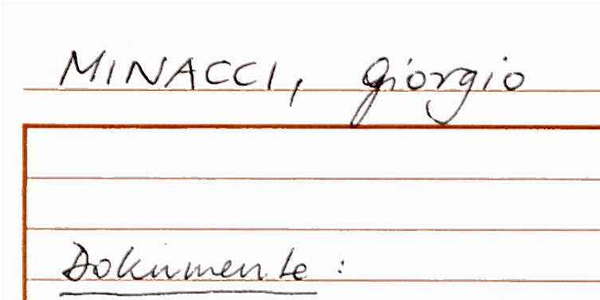 MINACCI, Giorgio
Dokumente :